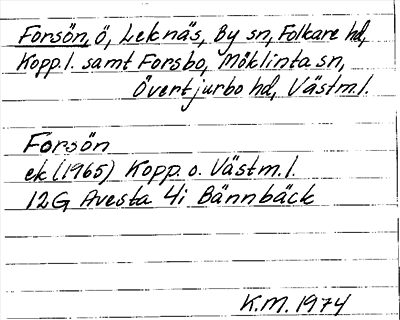 Forsön, ö, Leknäs, By sn, Folkare hd,
Kopp. l. samt Forsbo, Möklinta sn,
Övertjurbo hd, Västm. l.
Forsön
ek (1965) Kopp. o. Västm. l.
12G Avesta 4i Bännbäck
K.M. 1974